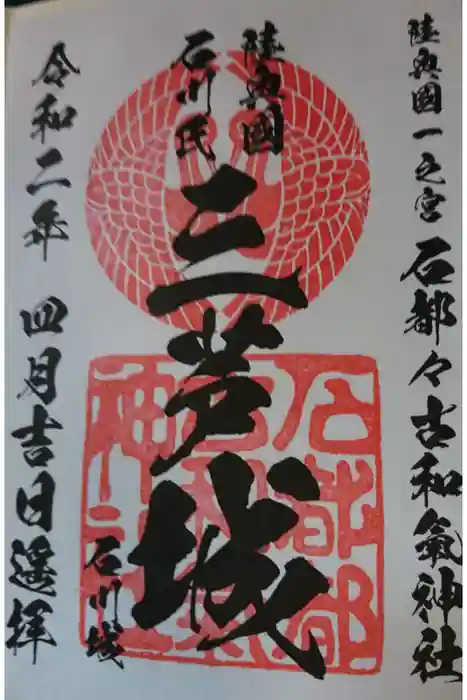 陸奥國一之宮 石都々古和氣神社
陸奥國
石川氏
三芦城
石川城
令和二年 四月吉日遥拝
石都都古和氣神社